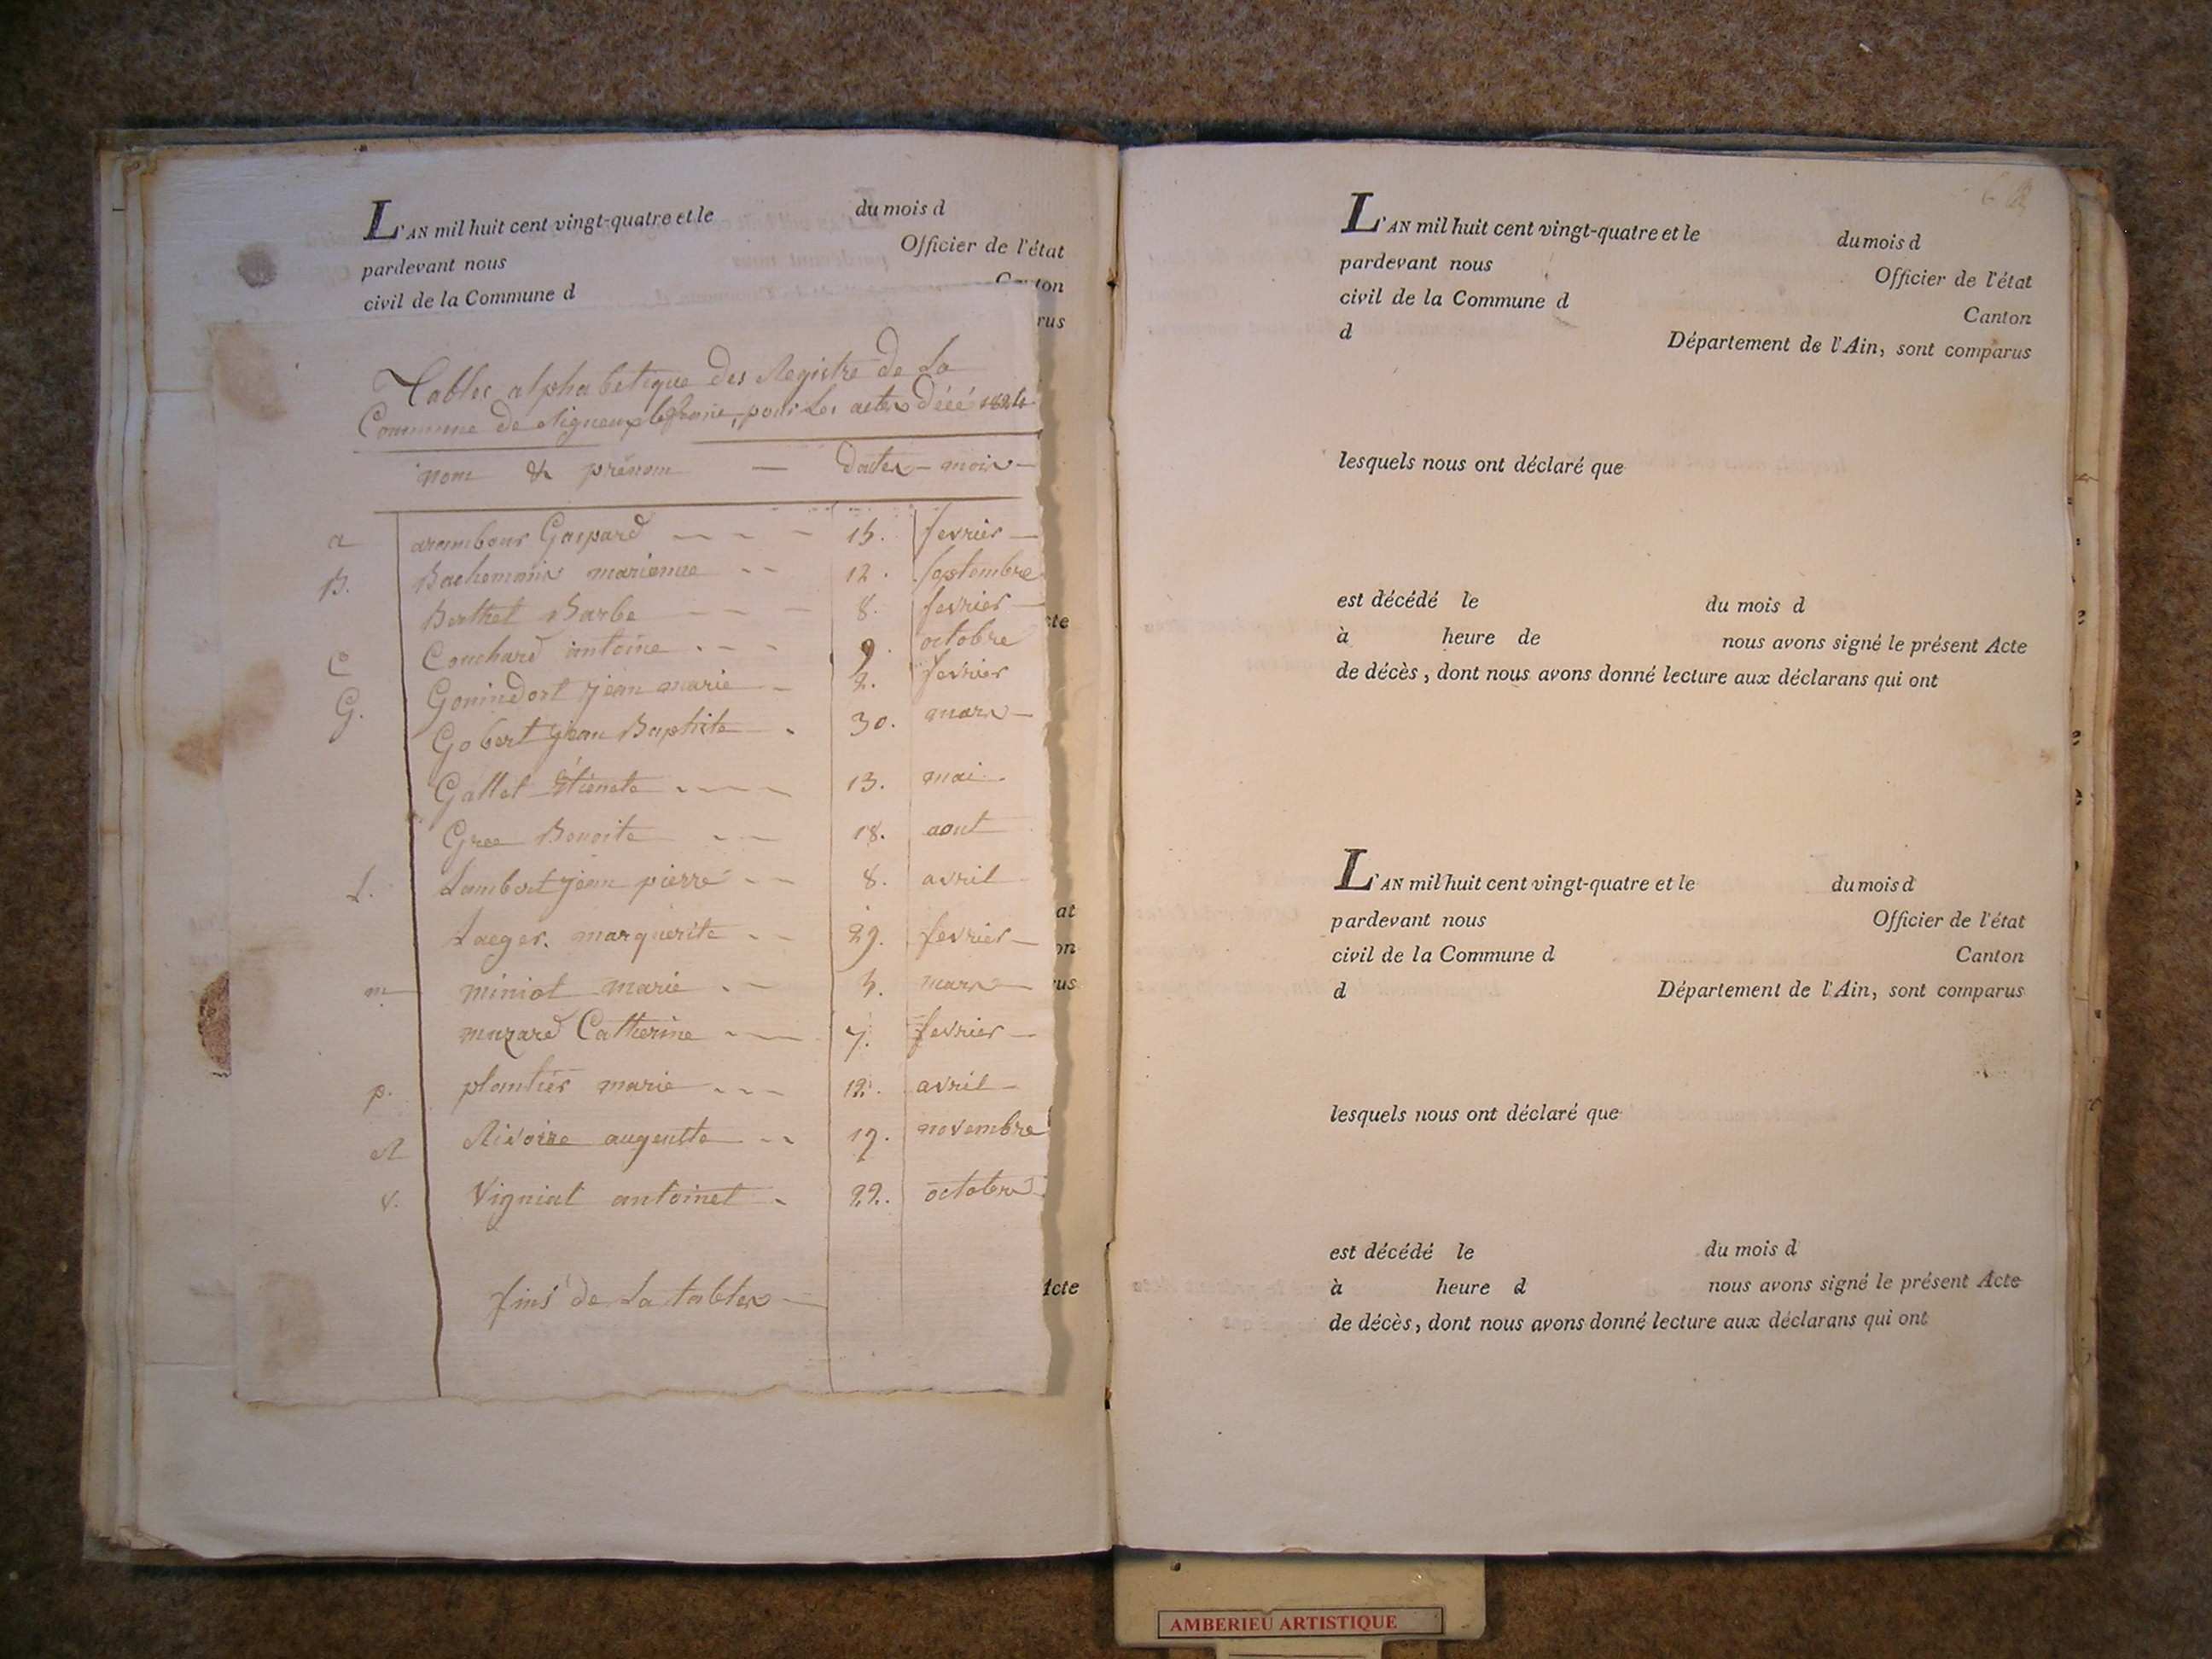 L'AN mil huit cent vingt-quatre et le du mois d
pardevant nous Officier de l'état
civil de la Commune d Canton
rus
Tables alphabetique des Registre de La
Commune de pour Les actes Décé 1824
nom & prénom — Dates — mois —
a arambour Gaspard — — — 15. fevrier —
B. marianne - - 12. septembre
Berthet Barbe — — — 8. fevrier —
cte
C Couchard antoine . - - 9. octobre
G. jean marie - 2. fevrier
Gobert jean Baptiste . 30. mars —
Gallet Etienete - - - - 13. mai
Gree Benoite - - - 18. aout
L. Lambert jean pierre - - 8. avril
at
Laeger. marguerite - - 29. fevrier —
on
m miniot marie . - 3. mars —
us
muzard Catherine - — 7. fevrier —
p. plantier marie - - - 12. avril —
R Rivoire augentte - - 19. novembre
V. Vigniat antoinet - 22. octobre
Acte
fins de La tables —
L'AN mil huit cent vingt-quatre et le du mois d
pardevant nous Officier de l'état
civil de la Commune d Canton
d Département de l'Ain, sont comparus
lesquels nous ont déclaré que
est décédé le du mois d
à heure de nous avons signé le présent Acte
de décès, dont nous avons donné lecture aux déclarans qui ont
L'AN mil huit cent vingt-quatre et le du mois d
pardevant nous Officier de l'état
civil de la Commune d Canton
d Département de l'Ain, sont comparus
lesquels nous ont déclaré que
est décédé le du mois d
à heure d nous avons signé le présent Acte
de décès, dont nous avons donné lecture aux déclarans qui ont
AMBERIEU ARTISTIQUE